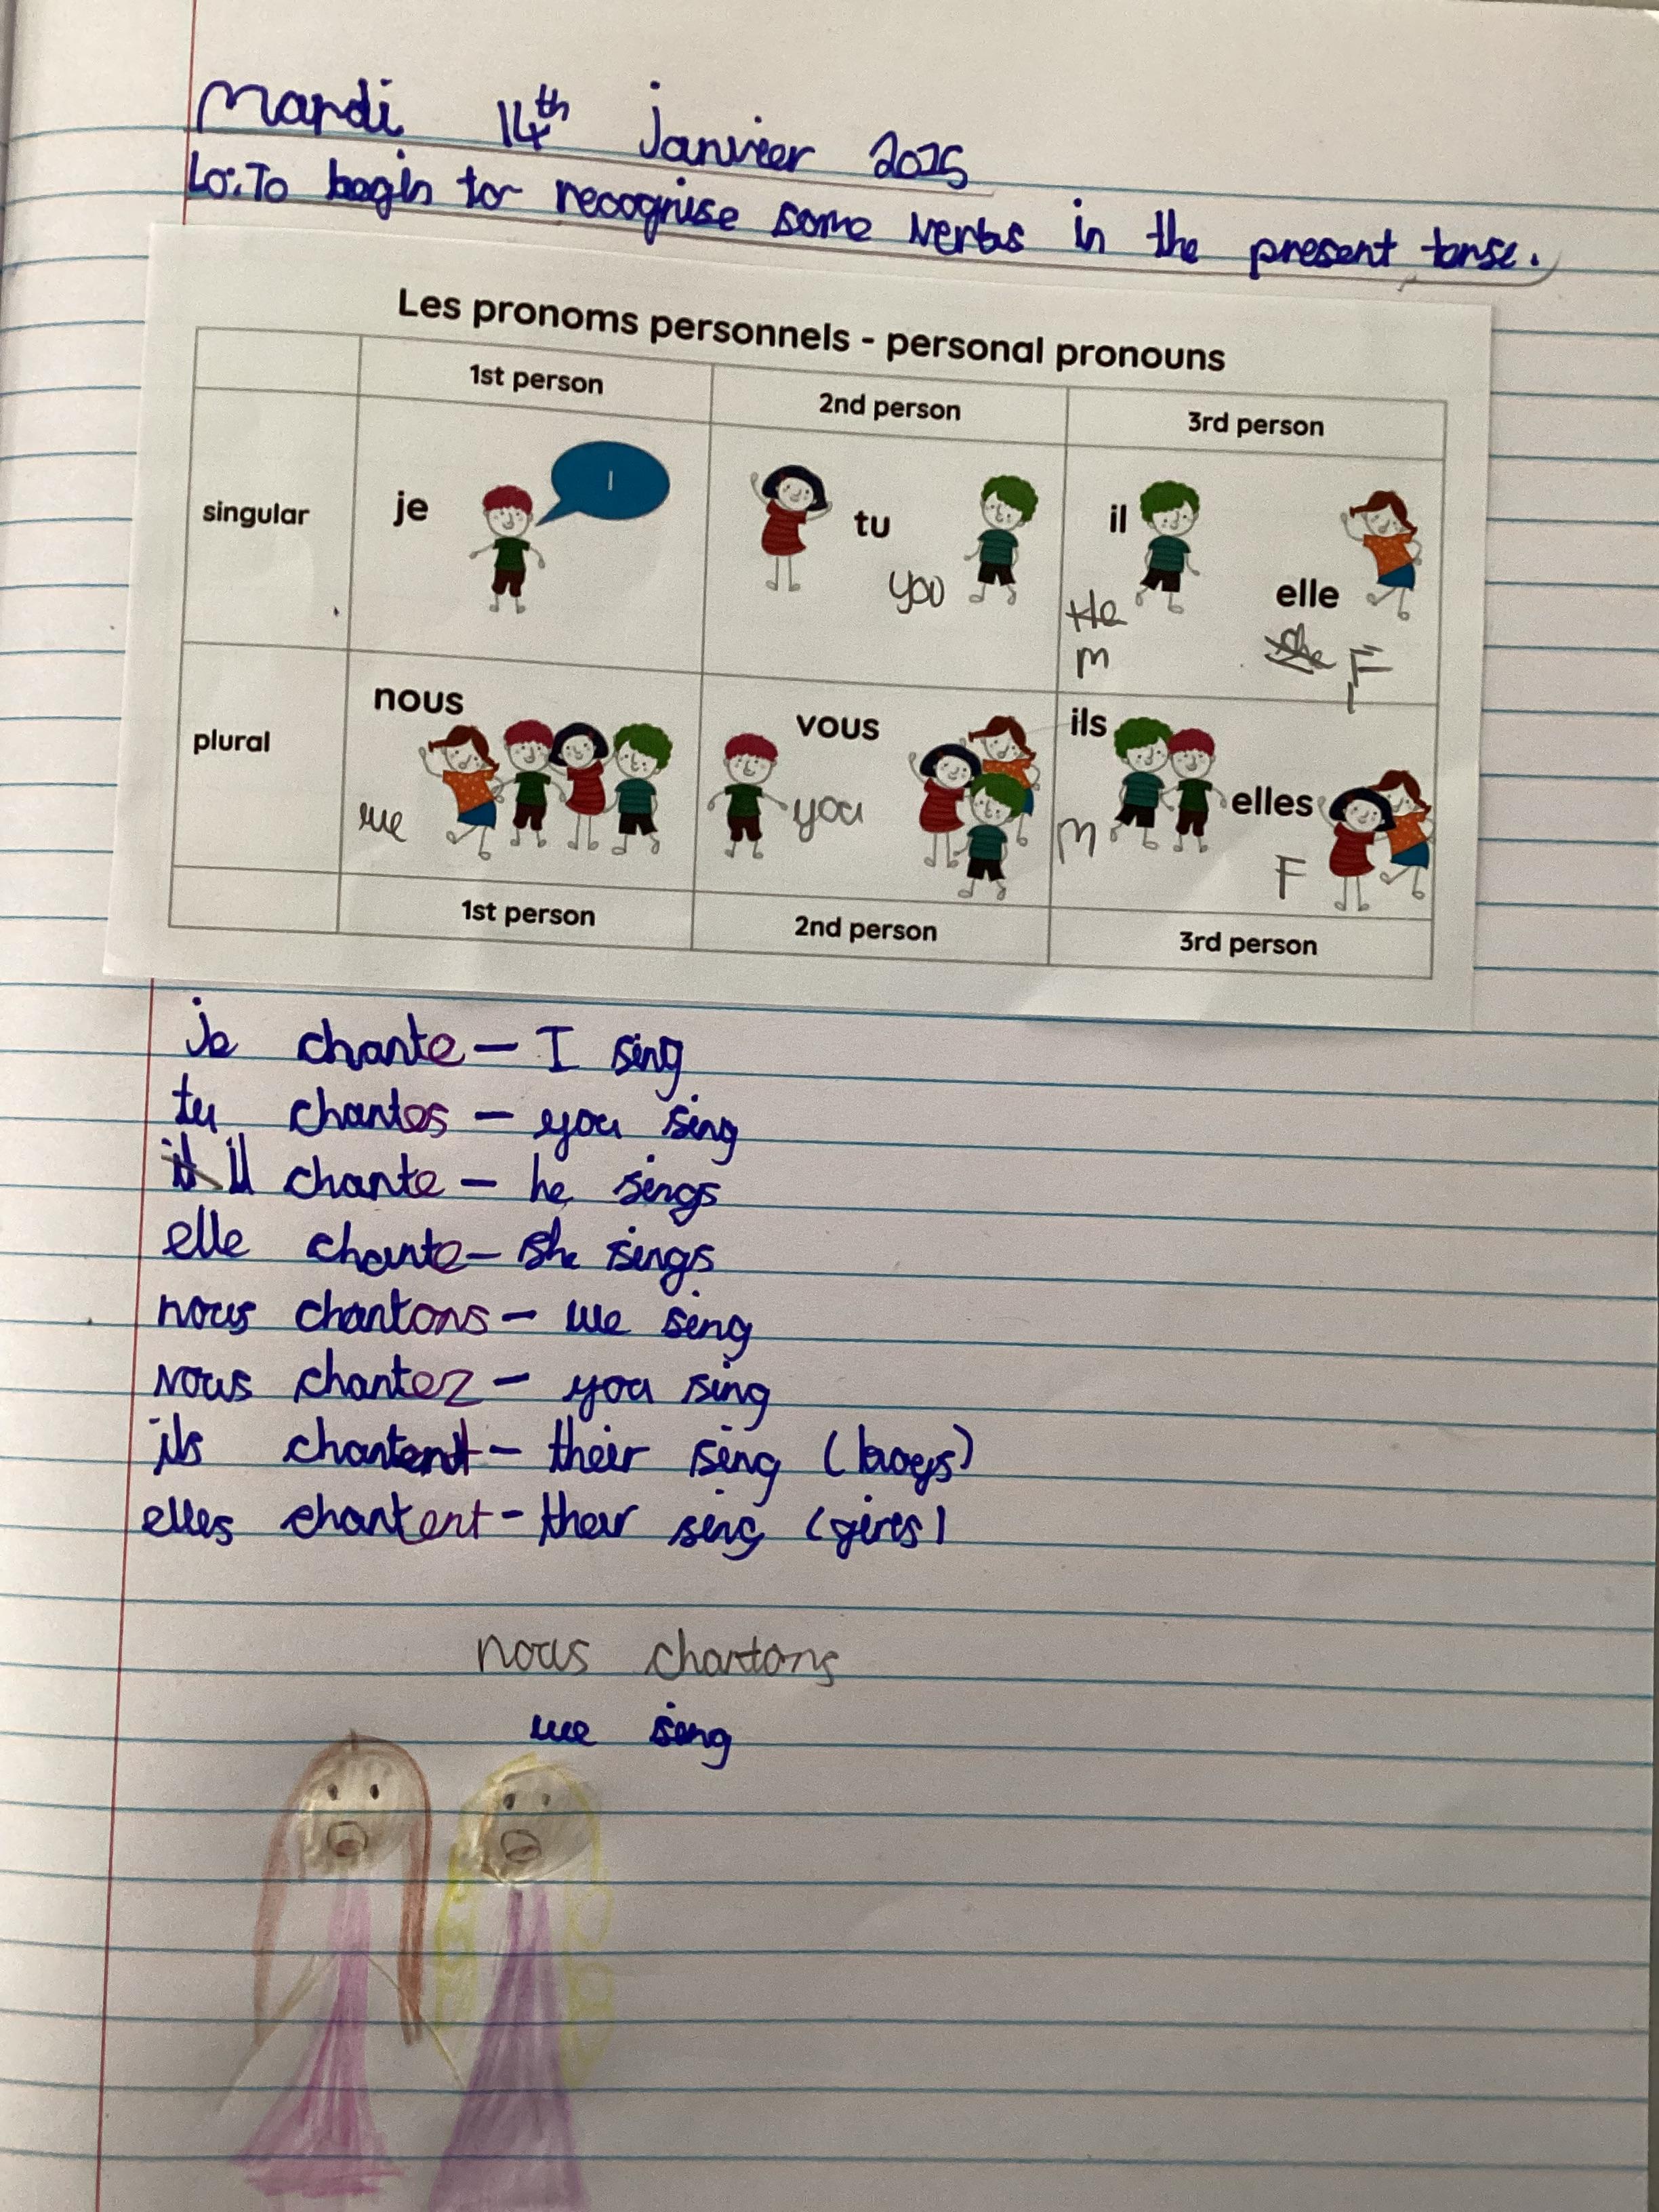 Mardi 14th Janvier 2025
Lo: To begin to recognise some verbs in the present tense.
Les pronoms personnels - personal pronouns
1st person 2nd person 3rd person
singular je I tu you il He m elle she F
plural nous we vous you ils M elles F
1st person 2nd person 3rd person
je chante - I sing
tu chantes - you sing
il chante - he sings
elle chante - she sings
nous chantons - we sing
vous chantez - you sing
ils chantent - their sing (boys)
elles chantent - their sing (girls)
nous chantons
we sing